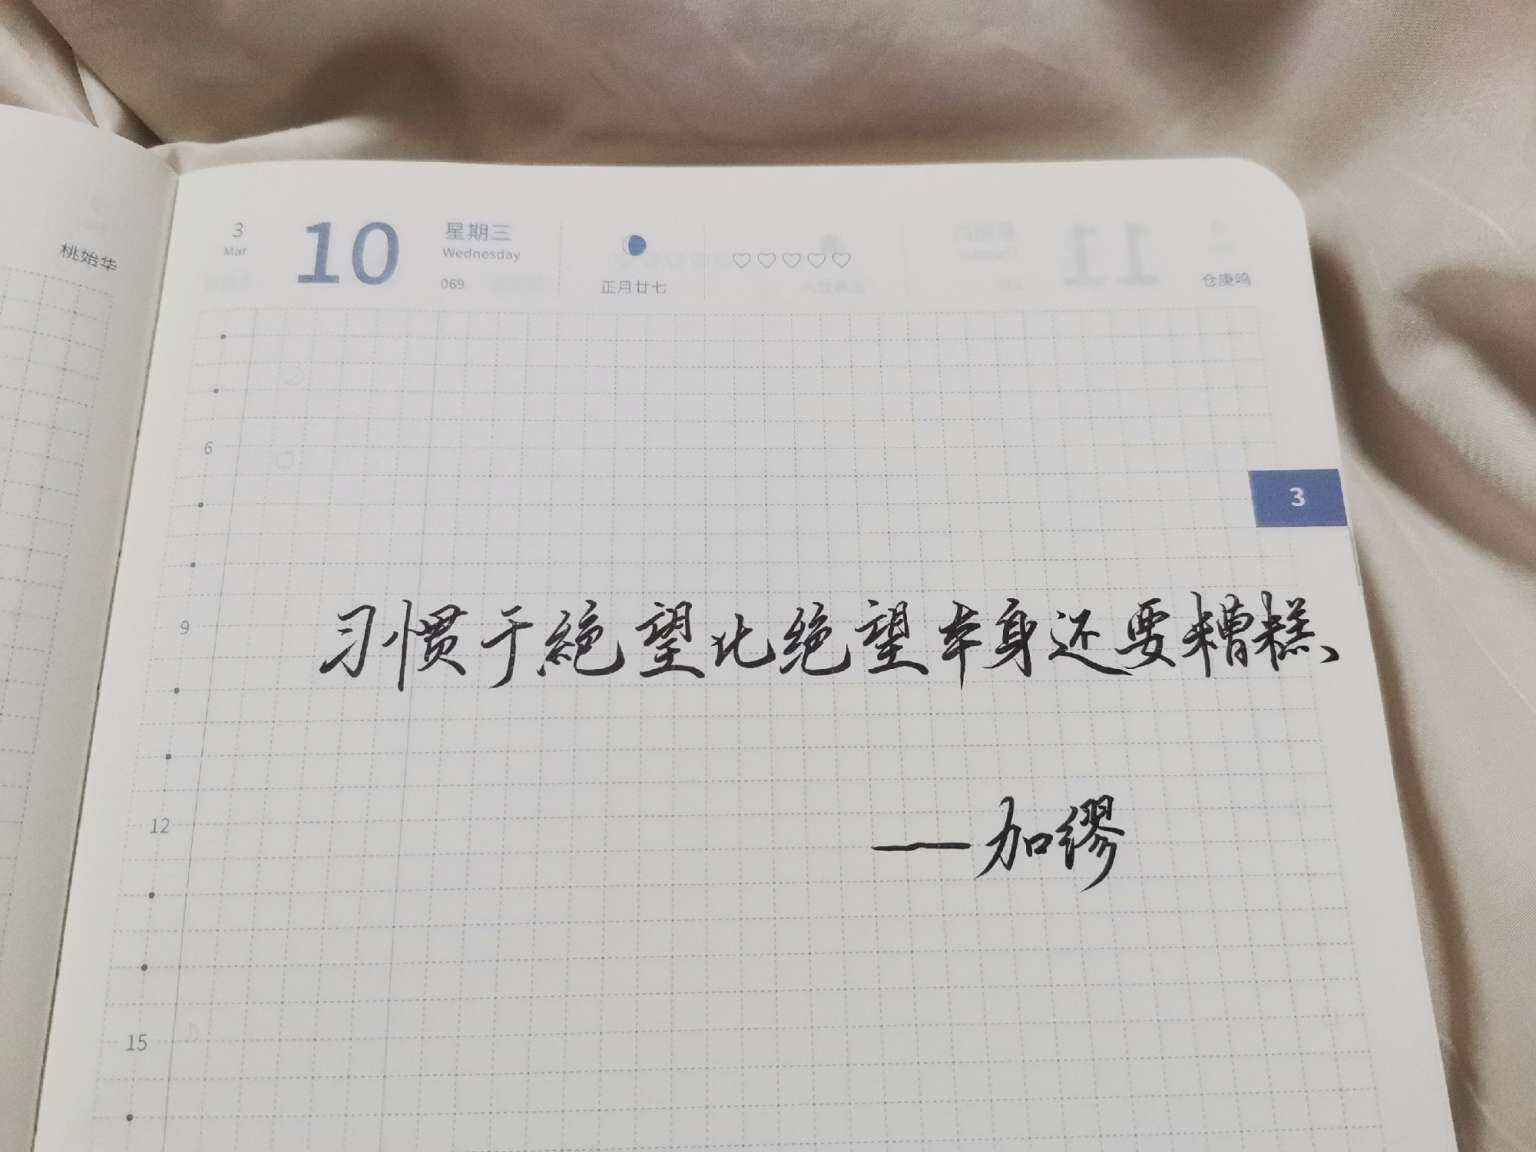 桃始华
3
Mar
10
星期三
Wednesday
069
正月廿七
仓庚鸣
6
3
习惯于絕望比绝望本身还要糟糕、
9
——加缪
12
15